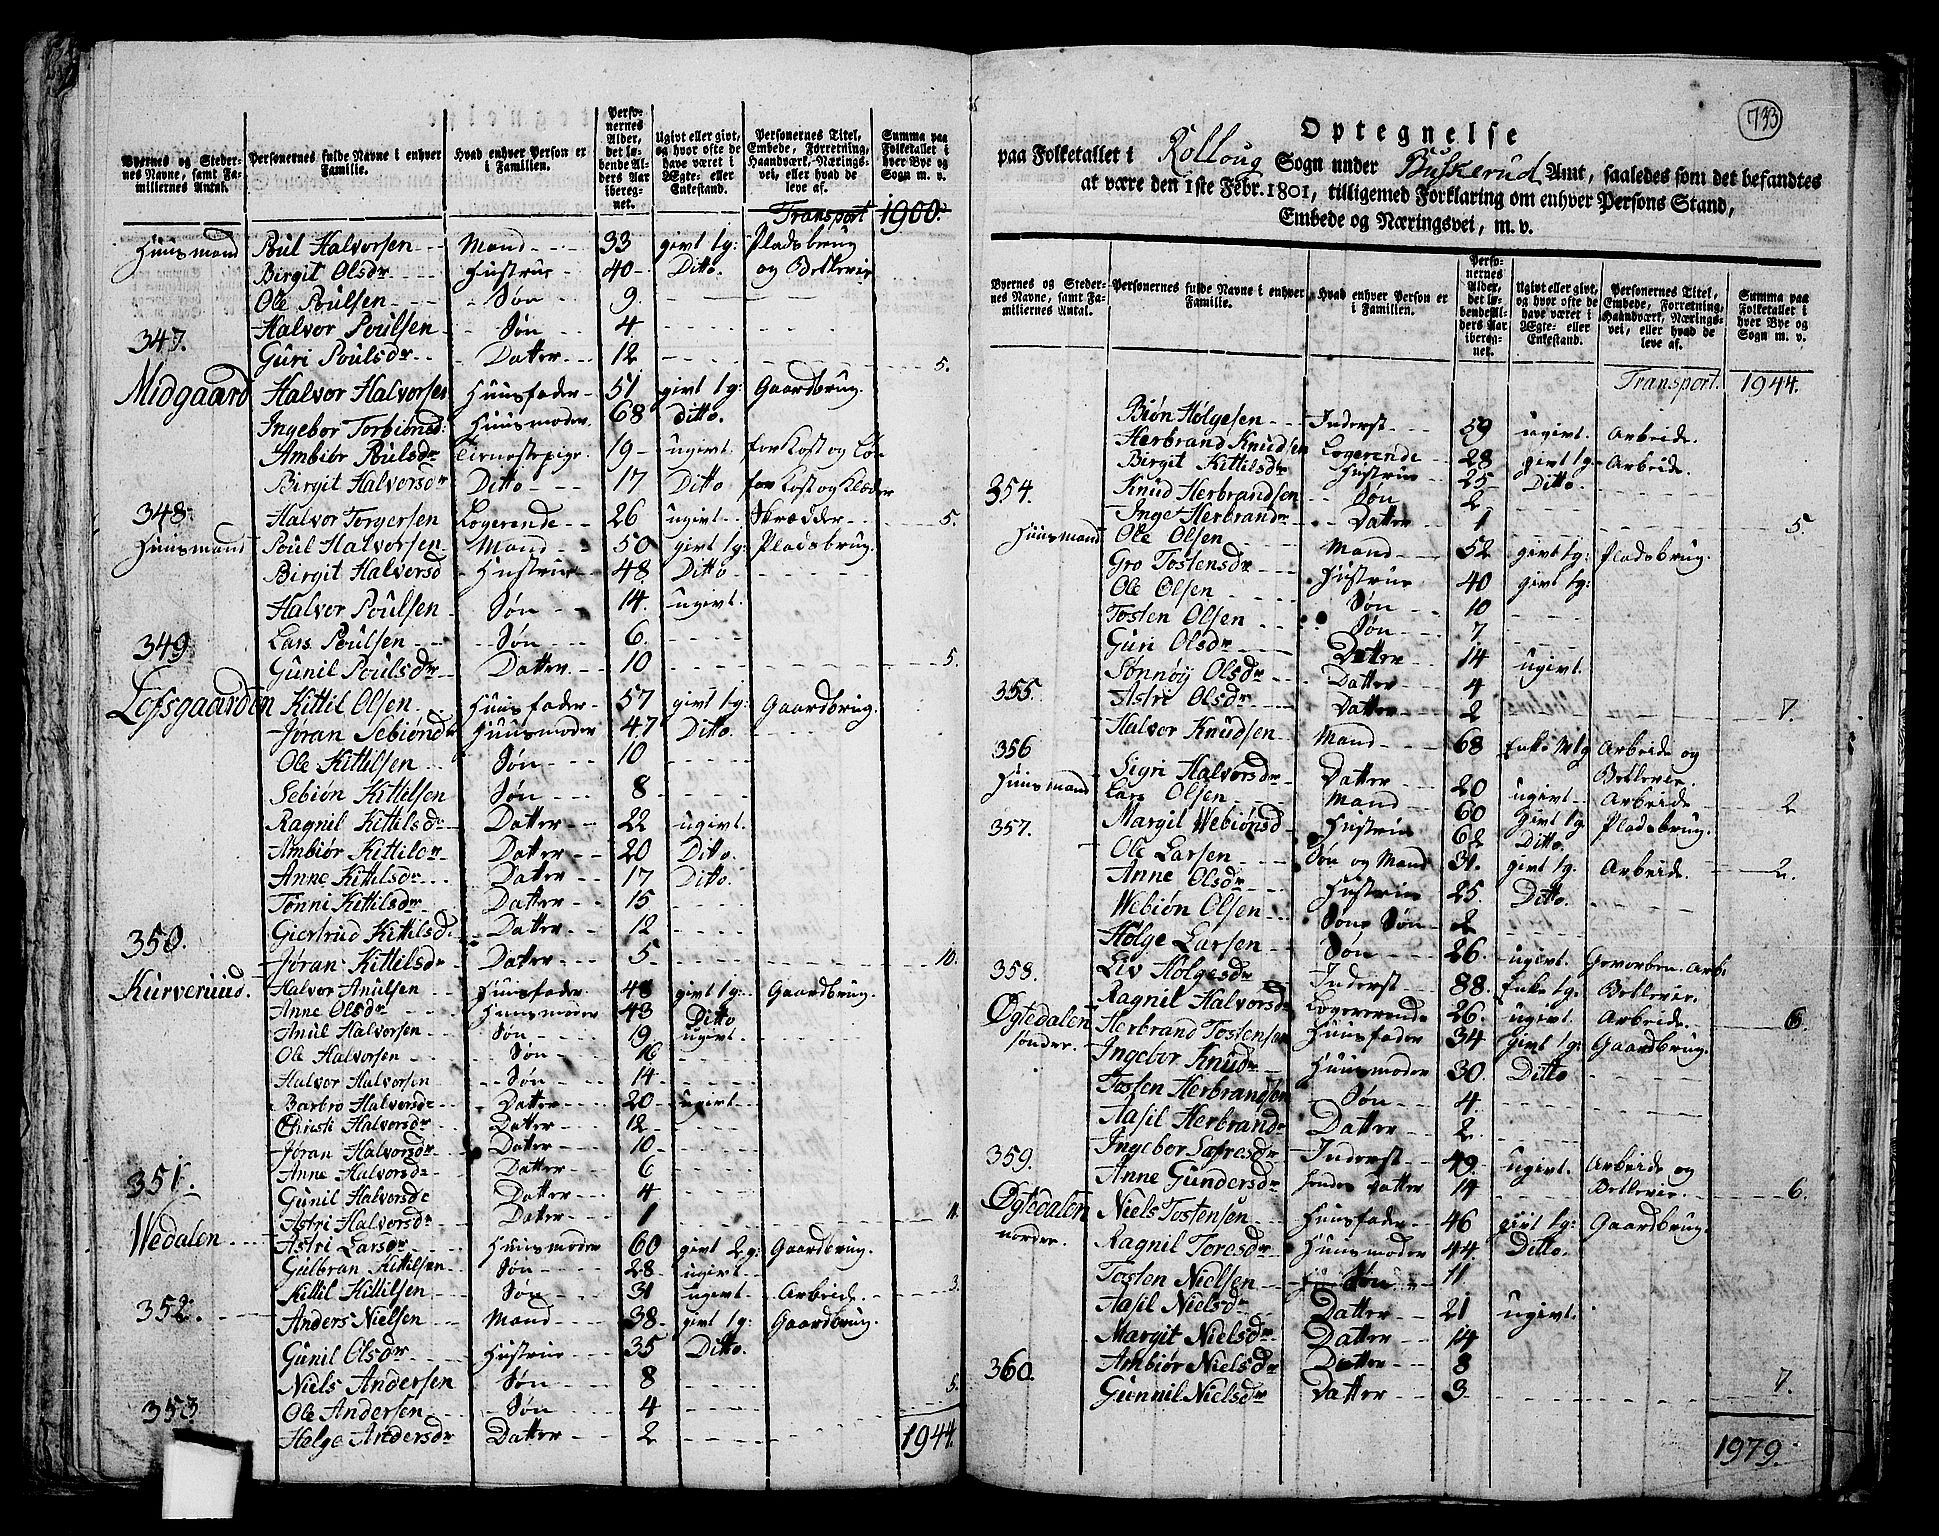 Byernes og Steder-
nes Navne, samt Fa-
miliernes Antal.
Personernes fulde Navne i enhver
Familie.
Hvad enhver Person er
i Familien.
Perso-
nernes
Alder,
det lø-
bende Al-
ders Aar
iberegn-
net.
Ugivt eller givt,
og hvor ofte de
have været i
Ægte- eller
Enkestand.
Personernes Titel,
Embede, Forretning,
Haandværk, Nærings-
vei, eller hvad de
leve af.
Summa paa
Folketallet i
hver Bye og
Sogn m. v.
Transport 1900.
Huusmand Poul Halvorsen Mand 33 givt 1g: Pladsbrug
Birgit Olsdr Hustrue 40 Ditto og Betlerie
Ole Poulsen Søn 9
Halvor Poulsen Søn 4
347. Guri Poulsdr Datter 12 5.
Midgaard Halvor Halvorsen Huusfader 51 givt 1g: Gaardbrug
Ingebor Torbiønsd: Huusmoder 68 ditto.
Ambiør Poulsdr Tienestepige 19 ugivt for Kost og Løn
Birgit Halvorsdr Ditto 17 Ditto for Kost og Klæder
348. Halvor Torgersen Logerende 26 ugivt Skrædder 5.
Huusmand Poul Halvorsen Mand 50 givt 1g: Pladsbrug.
Birgit Halvorsd Hustrue 48 Ditto
Halvor Poulsen Søn 14 ugivt.
Lars Poulsen Søn 6.
349 Gunil Poulsdr Datter 10 5.
Lofsgaarden Kittil Olsen Huusfader 57 givt 1g: Gaardbrug.
Jøran Sebiønsdr Huusmoder 47 Ditto.
Ole Kittilsen Søn 10
Sebiøn Kittilsen Søn 8
Ragnil Kittilsdr Datter 22 ugivt.
Ambiør Kittilsdr Datter 20 Ditto.
Anne Kittilsdr Datter 17 Ditto.
Tonni Kittilsdr Datter 15
Giertrud Kittilsd. Datter 12
350. Jøran Kittilsdr Datter 5 10.
Kurverund. Halvor Anulsen Huusfader 48 givt 1g: Gaardbrug.
Anne Olsdr Huusmoder 43 Ditto
Anul Halvorsen Søn 19 ugivt.
Ole Halvorsen Søn 16
Halvor Halvorsen Søn 14
Barbro Halvorsdr Datter 20 ugivt
Christi Halvorsdr Datter 12
Jøran Halvorsdr Datter 10
Anne Halvorsdr Datter 6
351. Gunil Halvorsdr Datter 4
Astri Halvorsdr Datter 1 11.
Wedalen Astri Larsdr Huusmoder 60 givt 2g: Gaardbrug.
Gulbran Kittilsen Søn 28 ugivt.
Kittil Kittilsen Søn 31 ugivt Arbeide 3.
352. Anders Nielsen Mand 38 givt 1g: Gaardbrug.
Gunil Olsdr Hustrue 35 Ditto.
Niels Andersen Søn 8 5.
353 Ole Andersen Søn 4
Helge Andersdr Datter 2 1944.
733
Optegnelse
paa Folketallet i Rolloug Sogn under Buskerud Amt, saaledes som det befandtes
at være den 1ste Febr. 1801, tilligemed Forklaring om enhver Persons Stand,
Embede og Næringsvei, m. v.
Byernes og Steder-
nes Navne, samt Fa-
miliernes Antal.
Personernes fulde Navne i enhver
Familie.
Hvad enhver Person er
i Familien.
Perso-
nernes
Alder,
det lø-
bende Al-
ders Aar
iberegn-
net.
Ugivt eller givt,
og hvor ofte de
have været i
Ægte- eller
Enkestand.
Personernes Titel,
Embede, Forretning,
Haandværk, Nærings-
vei, eller hvad de
leve af.
Summa paa
Folketallet i
hver Bye og
Sogn m. v.
Transport. 1944.
Biøn Holgesen Inderst 59 ugivt. Arbeide.
Herbrand Knudsen Logerende 28 givt 1g Arbeide.
Birgit Kittilsdr Hustrue 25 Ditto
354. Knud Herbrandsen Søn 2
Inge Herbrandr Datter 1 5.
Huusmand Ole Olsen Mand 52 givt 1g: Pladsbrug.
Gro Tostensdr Hustrue 40 givt 1g:
Ole Olsen Søn 10
Tosten Olsen Søn 7
Guri Olsdr Datter 14 ugivt.
Sønnøy Olsdr Datter 4
355. Astri Olsdr Datter 2 7.
356 Halvor Knudsen Mand 68 Enke M 1g Arbeide og
Betlerie.
Sigri Halvorsdr Datter 20 ugivt Arbeide 2
Huusmand Lars Olsen Mand 60 givt 1g Pladsbrug.
357. Margit Webiønsd Hustrue 62 Ditto.
Ole Larsen Søn og Mand 31. givt 1g: Arbeide. 2.
Anne Olsdr Hustrue 25 Ditto.
Webiøn Olsen Søns Søn 2
Holge Larsen Søn 26. ugivt. Gevorben. Arbe
358. Liv Holgesdr Inderst 88. Enke 1g. Betlerie.
Ragnil Halvorsdr Logererende 26. ugivt. Arbeide. 6.
Øgtedalen Herbrand Tostensen Huusfader 34 givt 1g: Gaardbrug.
sønder. Ingebor Knudr Huusmoder 30. Ditto
Tosten Herbrandsen Søn 4.
Aasil Herbrandr Datter 2.
359. Ingebor Sefresdr Inderst 49. ugivt. Arbeide og
Anne Gundersdr hendes Datter 14 Betlerie. 6.
Øgtedalen Niels Tostensen Huusfader 46 givt 1g: Gaardbrug.
nordre. Ragnil Toresdr Huusmoder 44. Ditto.
Tosten Nielsen Søn 11
Aasil Nielsdr Datter 21 ugivt.
Margit Nielsdr Datter 14
360. Ambiør Nielsdr Datter 8
Gunnil Nielsdr Datter 3 7.
1979.